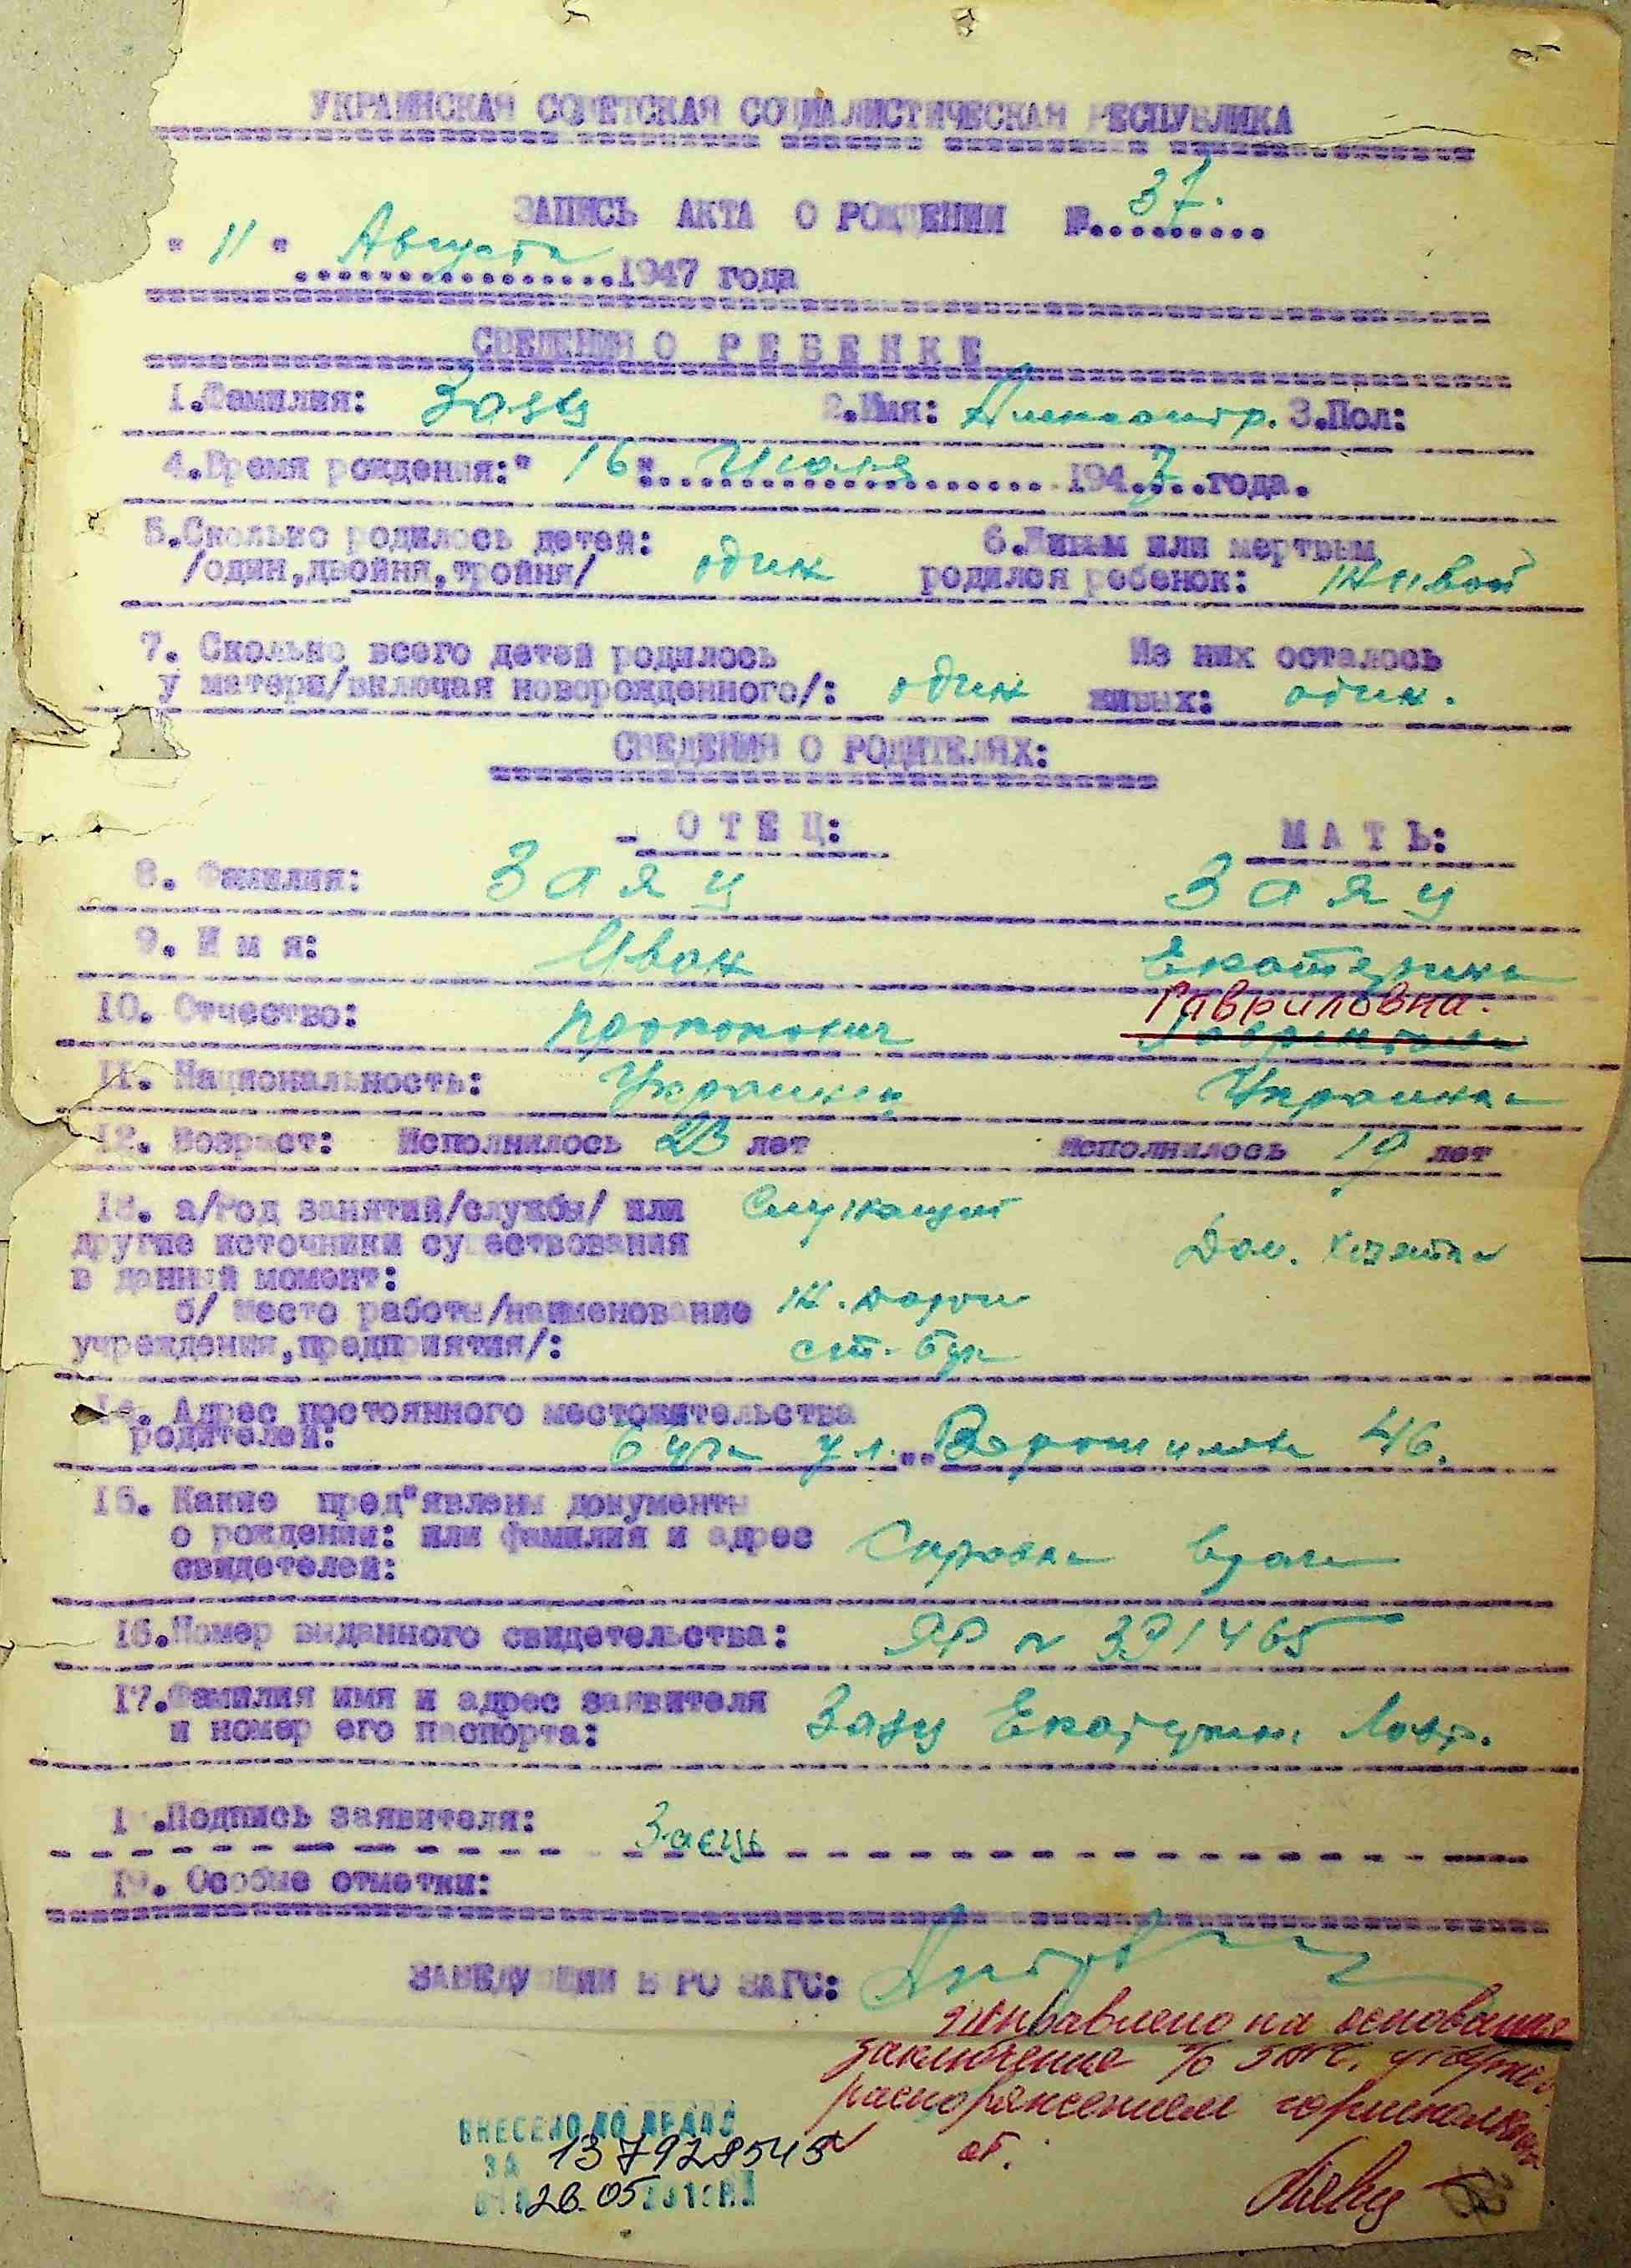 УКРАИНСКАЯ СОВЕТСКАЯ СОЦИАЛИСТИЧЕСКАЯ РЕСПУБЛИКА
ЗАПИСЬ АКТА О РОЖДЕНИИ №.......... 37.
" 11 " Августа 1947 года
СВЕДЕНИЯ О РЕБЕНКЕ
1.Фамилия: Заяц 2.Имя: Александр. 3.Пол:
4.Время рождения:" 16 " 1947 года.
5.Сколько родилось детей: 6.Живым или мертвым
/один,двойня,тройня/ один родился ребенок: живой
7. Сколько всего детей родилось Из них осталось
у матери/включая новорожденного/: один живых: один.
СВЕДЕНИЯ О РОДИТЕЛЯХ:
ОТЕЦ: МАТЬ:
8. Фамилия: Заяц Заяц
9. Имя: Иван Екатерина
10. Отчество: Прокопович Гавриловна.
11. Национальность: Украинец Украинка
12. Возраст: Исполнилось 23 лет исполнилось 19 лет
13. а/род занятий/службы/ или Служащий
другие источники существования Дом. хозяйка
в данный момент:
б/ место работы/наименование ж.дорога
учреждения,предприятия/: ст.
14. Адрес постоянного местожительства
родителей: ул. Ворошилова 46.
15. Какие пред"явлены документы
о рождении: или фамилия и адрес Справка врача
свидетелей:
16.Номер выданного свидетельства: ЯР № 391465
17.Фамилия имя и адрес заявителя Заяц Екатерина Гавр.
и номер его паспорта:
1 .Подпись заявителя: Заєць
19. Особые отметки:
ЗАВЕДУЮЩИЙ Б РО ЗАГС:
Исправлено на основании
заключения г/о ЗАГС,
распоряжением горисполкома
от.
ВНЕСЕНО ДО ДРАЦС
ЗА № 1379285451
26.05